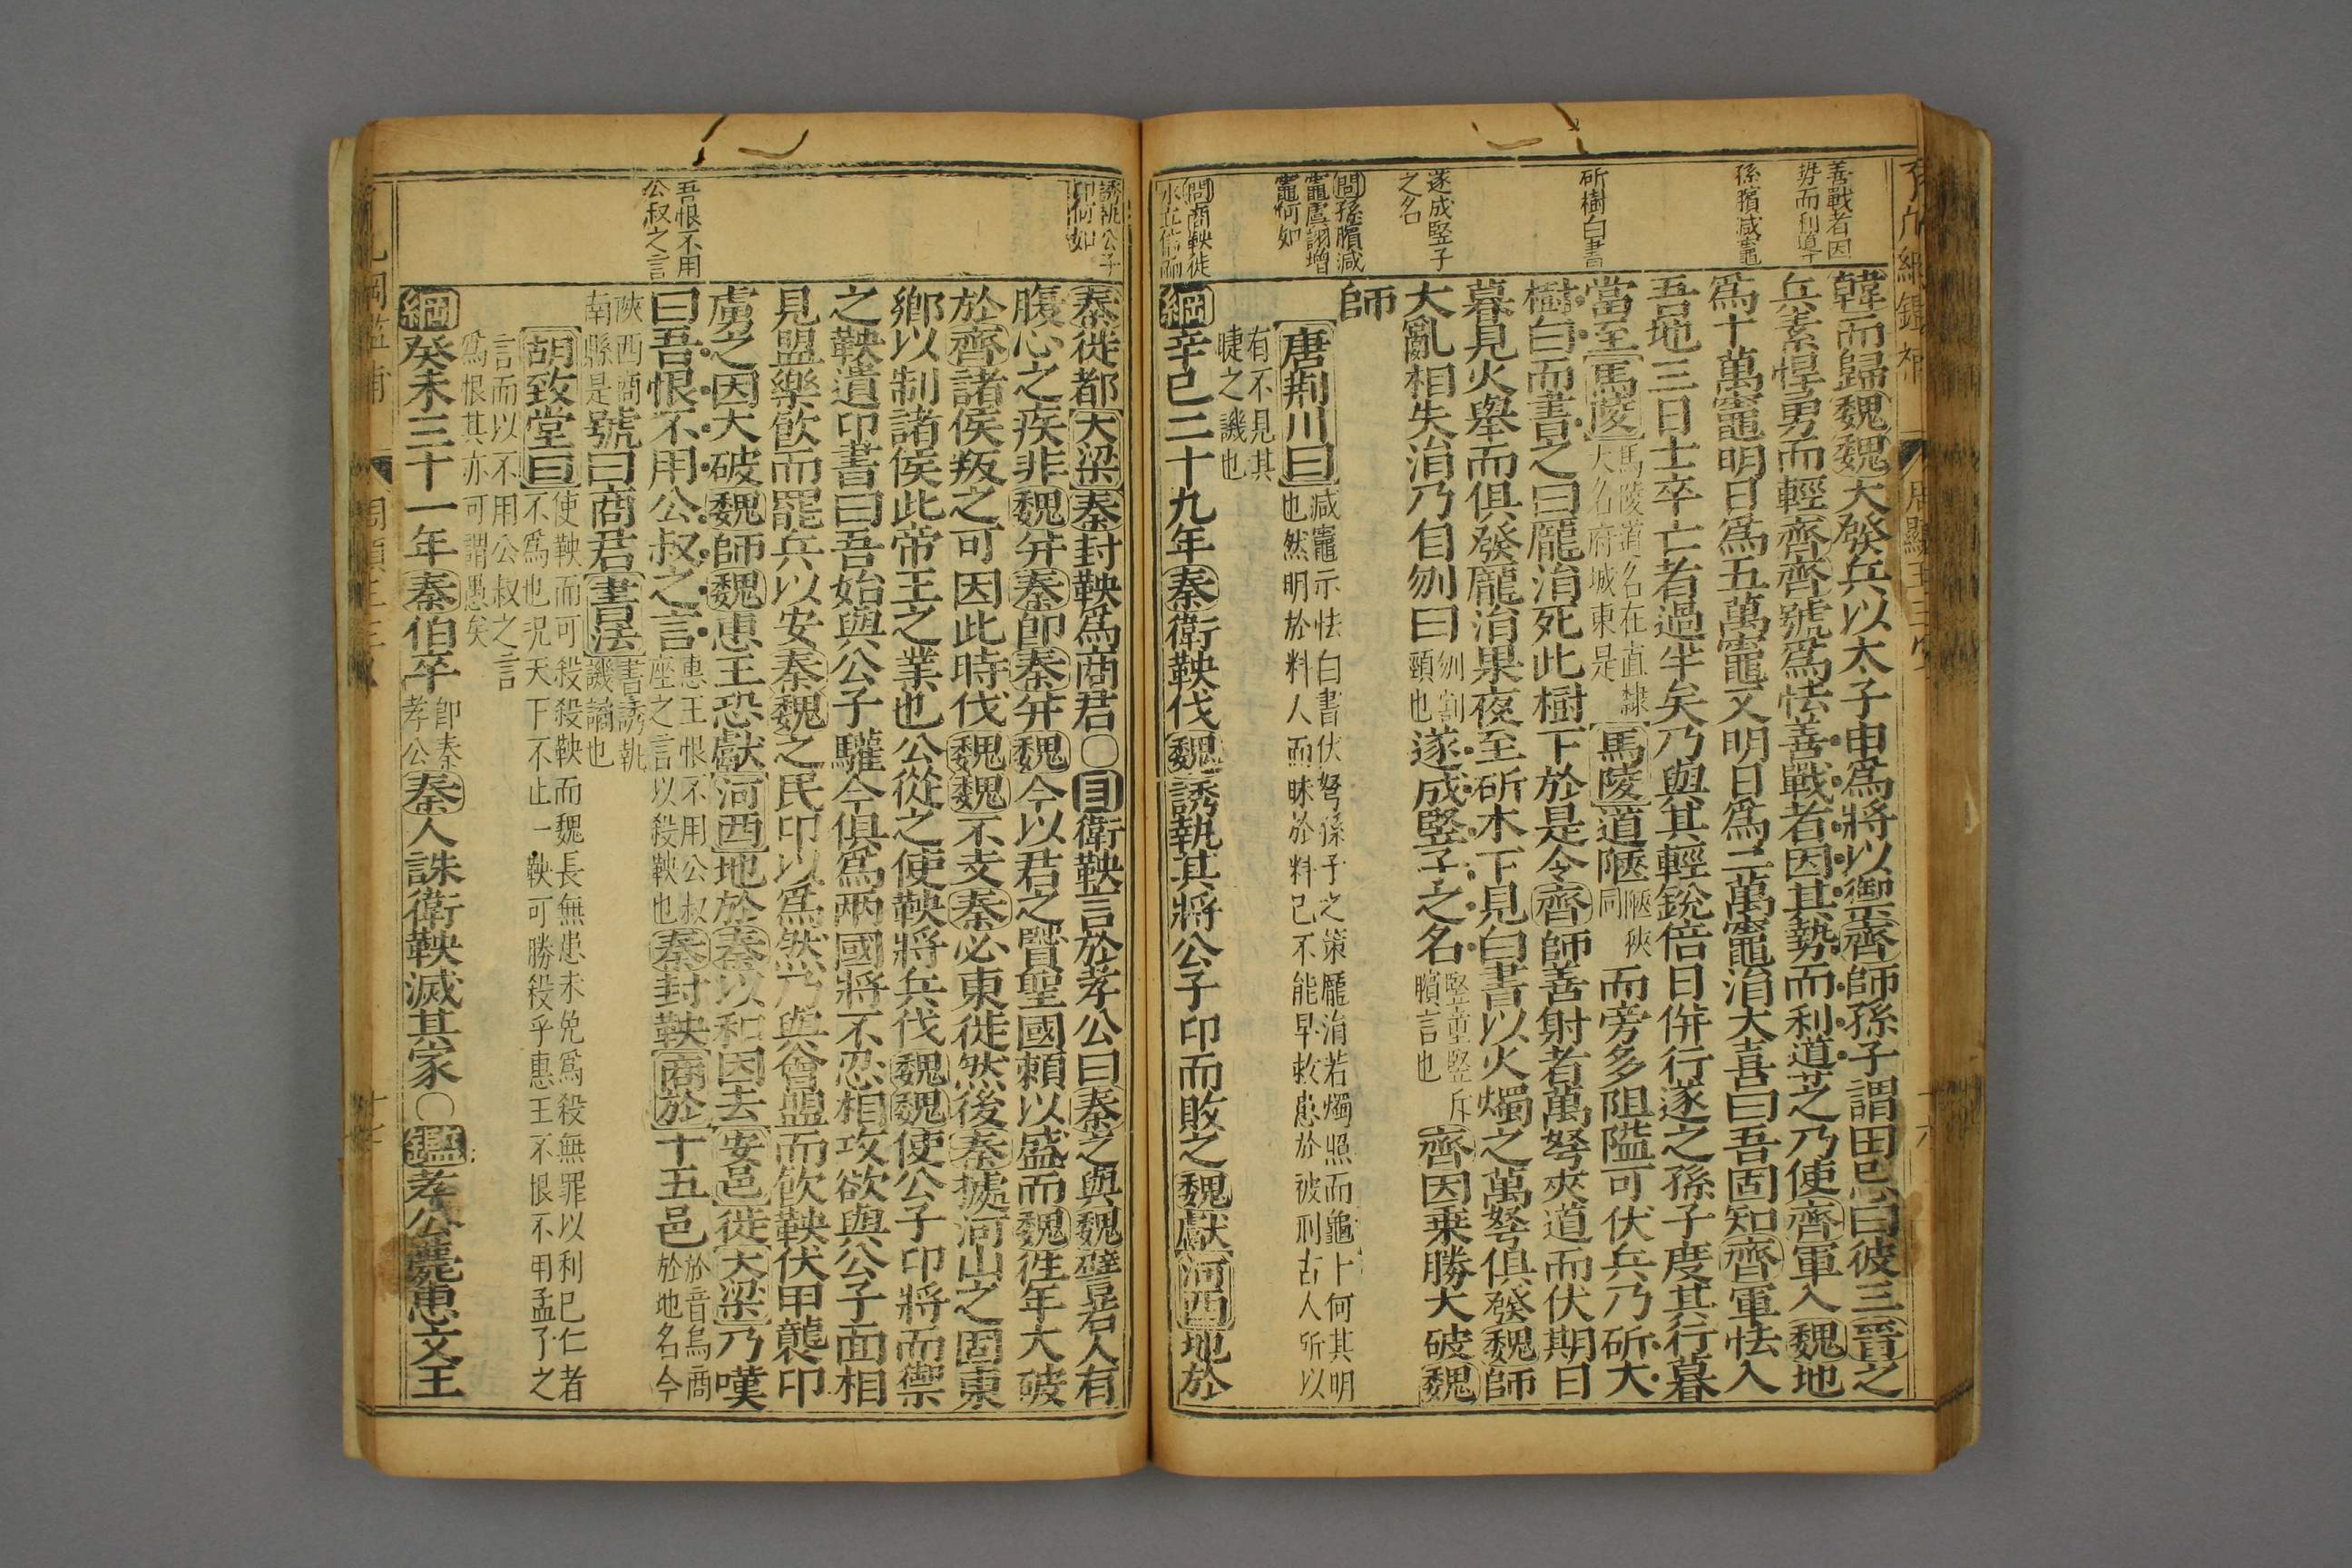 善戰者因
勢而利導
孫臏減竈
斫樹白書
遂成竪子
之名
問孫臏減
竈虞詡增
竈何如
問商鞅徙
韓而歸魏魏大發兵以太子申爲將以禦齊師孫子謂田忌曰彼三晉之
兵素悍勇而輕齊齊號爲怯善戰者因其勢而利道之乃使齊軍入魏地
爲十萬竈明日爲五萬竈又明日爲三萬竈涓大喜曰吾固知齊軍怯入
吾地三日士卒亡者過半矣乃與其輕銳倍日併行逐之孫子度其行暮
當至馬陵馬陵道名在直隸大名府城東是馬陵道陿陿狹同而旁多阻隘可伏兵乃斫大
樹白而書之曰龐涓死此樹下於是令齊師善射者萬弩夾道而伏期日
暮見火舉而俱發龐涓果夜至斫木下見白書以火燭之萬弩俱發魏師
大亂相失涓乃自刎曰刎割頸也遂成竪子之名竪童竪斥臏言也齊因乗勝大破魏
師
唐荆川曰減竈示怯白書伏弩孫子之策龐涓若燭照而龜卜何其明也然明於料人而昧於料己不能早救患於被刑古人所以
有不見其
睫之譏也
綱辛巳二十九年秦衛鞅伐魏誘執其將公子卬而敗之魏獻河西地於
誘執公子
卬何如
吾恨不用
公叔之言
秦徙都大梁秦封鞅爲商君○目衛鞅言於孝公曰秦之與魏譬若人有
腹心之疾非魏并秦卽秦并魏今以君之賢聖國賴以盛而魏徃年大破
於齊諸侯叛之可因此時伐魏魏不支秦必東徙然後秦據河山之固東
鄉以制諸侯此帝王之業也公從之使鞅將兵伐魏魏使公子卬將而禦
之鞅遺卬書曰吾始與公子驩今俱爲兩國將不忍相攻欲與公子面相
見盟樂飲而罷兵以安秦魏之民卬以爲然乃與會盟而飲鞅伏甲襲卬
虜之因大破魏師魏惠王恐獻河西地於秦以和因去安邑徙大梁乃嘆
曰吾恨不用公叔之言惠王恨不用公叔座之言以殺鞅也秦封鞅商於十五邑於音烏商於地名今
陝西商南縣是號曰商君書法書誘執譏譎也
胡致堂曰使鞅而可殺殺鞅而魏長無患未免爲殺無罪以利己仁者不爲也况天下不止一鞅可勝殺乎惠王不恨不用孟子之
言而以不用公叔之言
爲恨其亦可謂愚矣
綱癸未三十一年秦伯卒卽秦孝公秦人誅衛鞅滅其家○鑑孝公薨惠文王